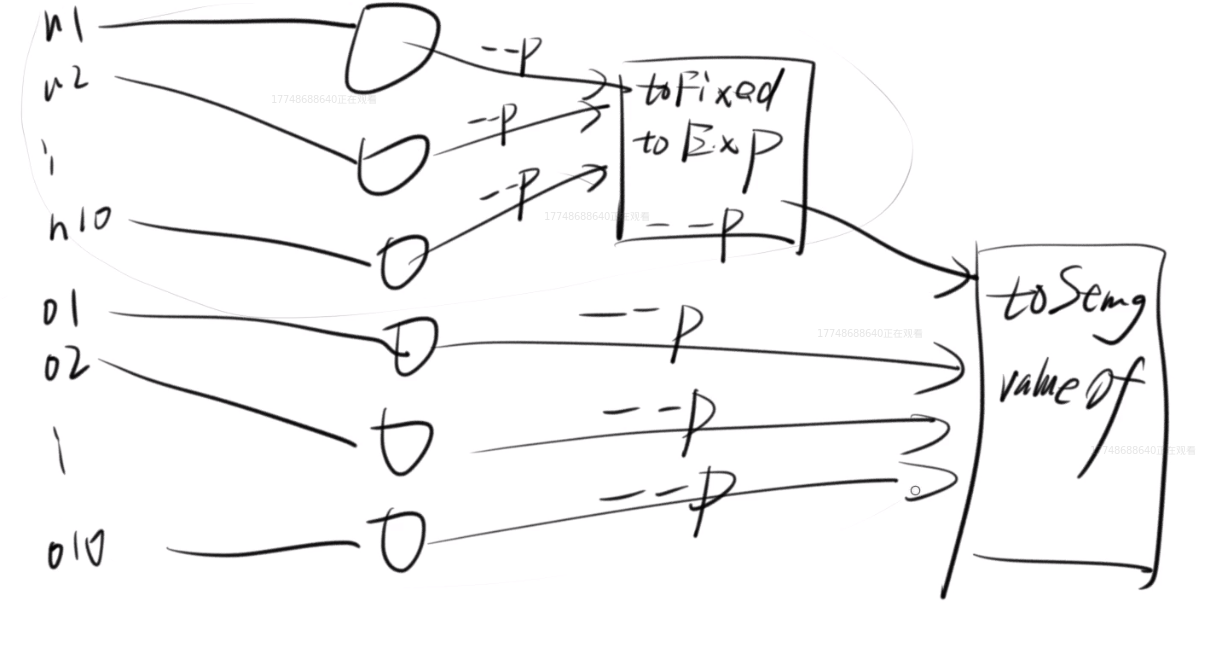 n1
n2
n10
o1
o2
o10
--p
--p
--p
toFixed
toExp
--p
--p
--p
--p
toSemg
valueOf
17748688640正在观看
17748688640正在观看
17748688640正在观看
17748688640正在观看